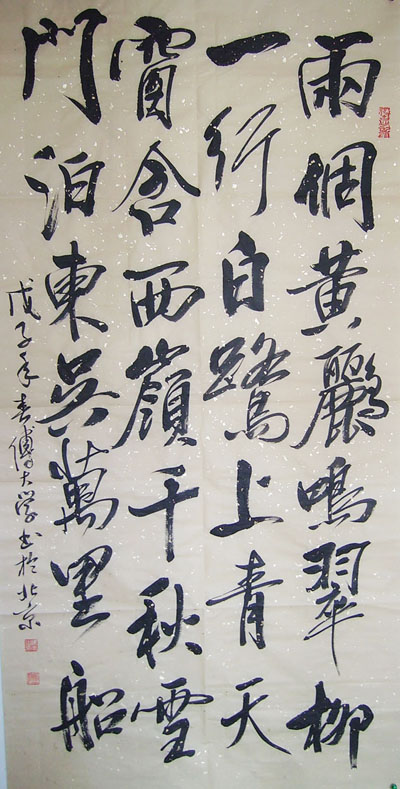 兩個黃鸝鳴翠柳
一行白鷺上青天
窗含西嶺千秋雪
門泊東吳萬里船
戊子年春傅大学书於北京